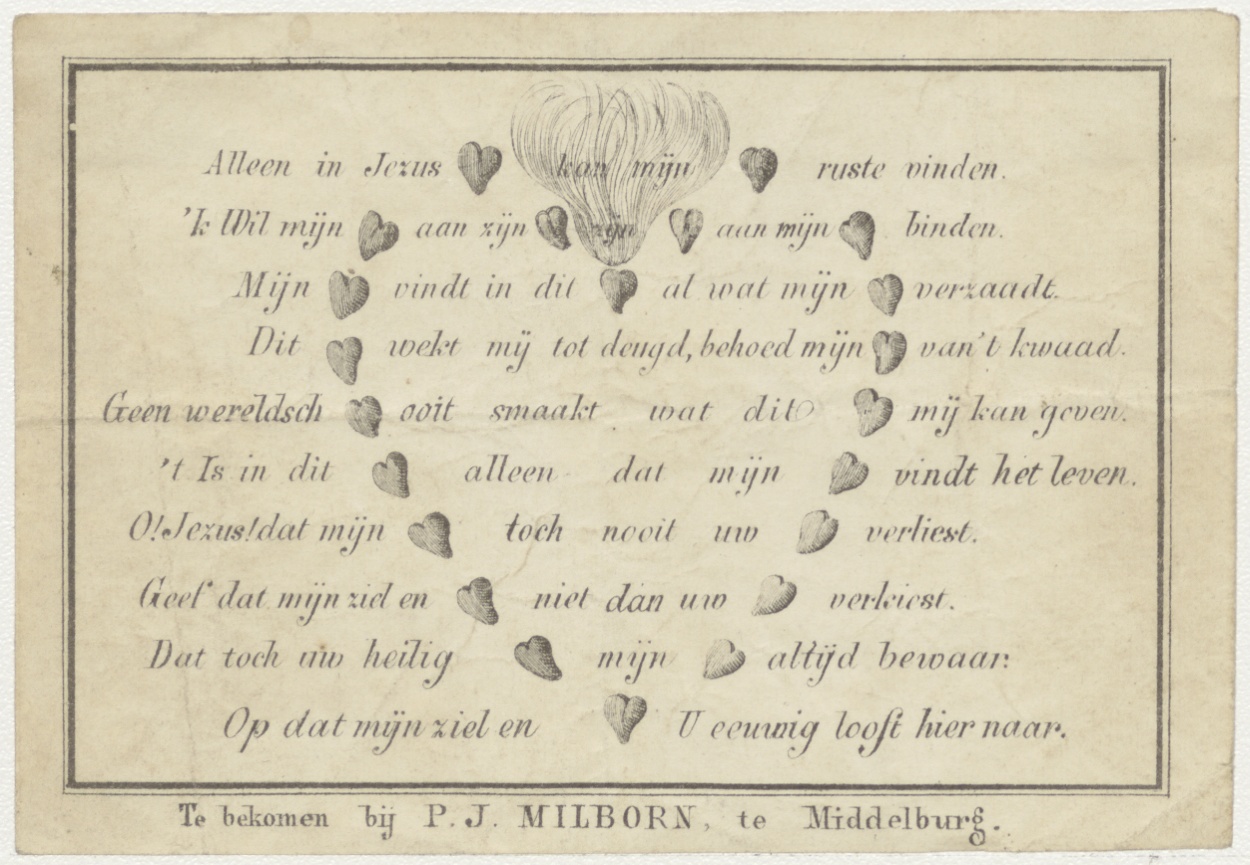 Alleen in Jezus kan mijn ruste vinden.
'k Wil mijn aan zijn zijn aan mijn binden.
Mijn vindt in dit al wat mijn verzaadt.
Dit wekt mij tot deugd, behoed mijn van't kwaad.
Geen wereldsch ooit smaakt wat dit mij kan geven.
't Is in dit alleen dat mijn vindt het leven.
O! Jezus! dat mijn toch nooit uw verliest.
Geef dat mijn ziel en niet dan uw verkiest.
Dat toch uw heilig mijn altijd bewaar:
Op dat mijn ziel en U eeuwig looft hier naar.
Te bekomen bij P. J. MILBORN, te Middelburg.